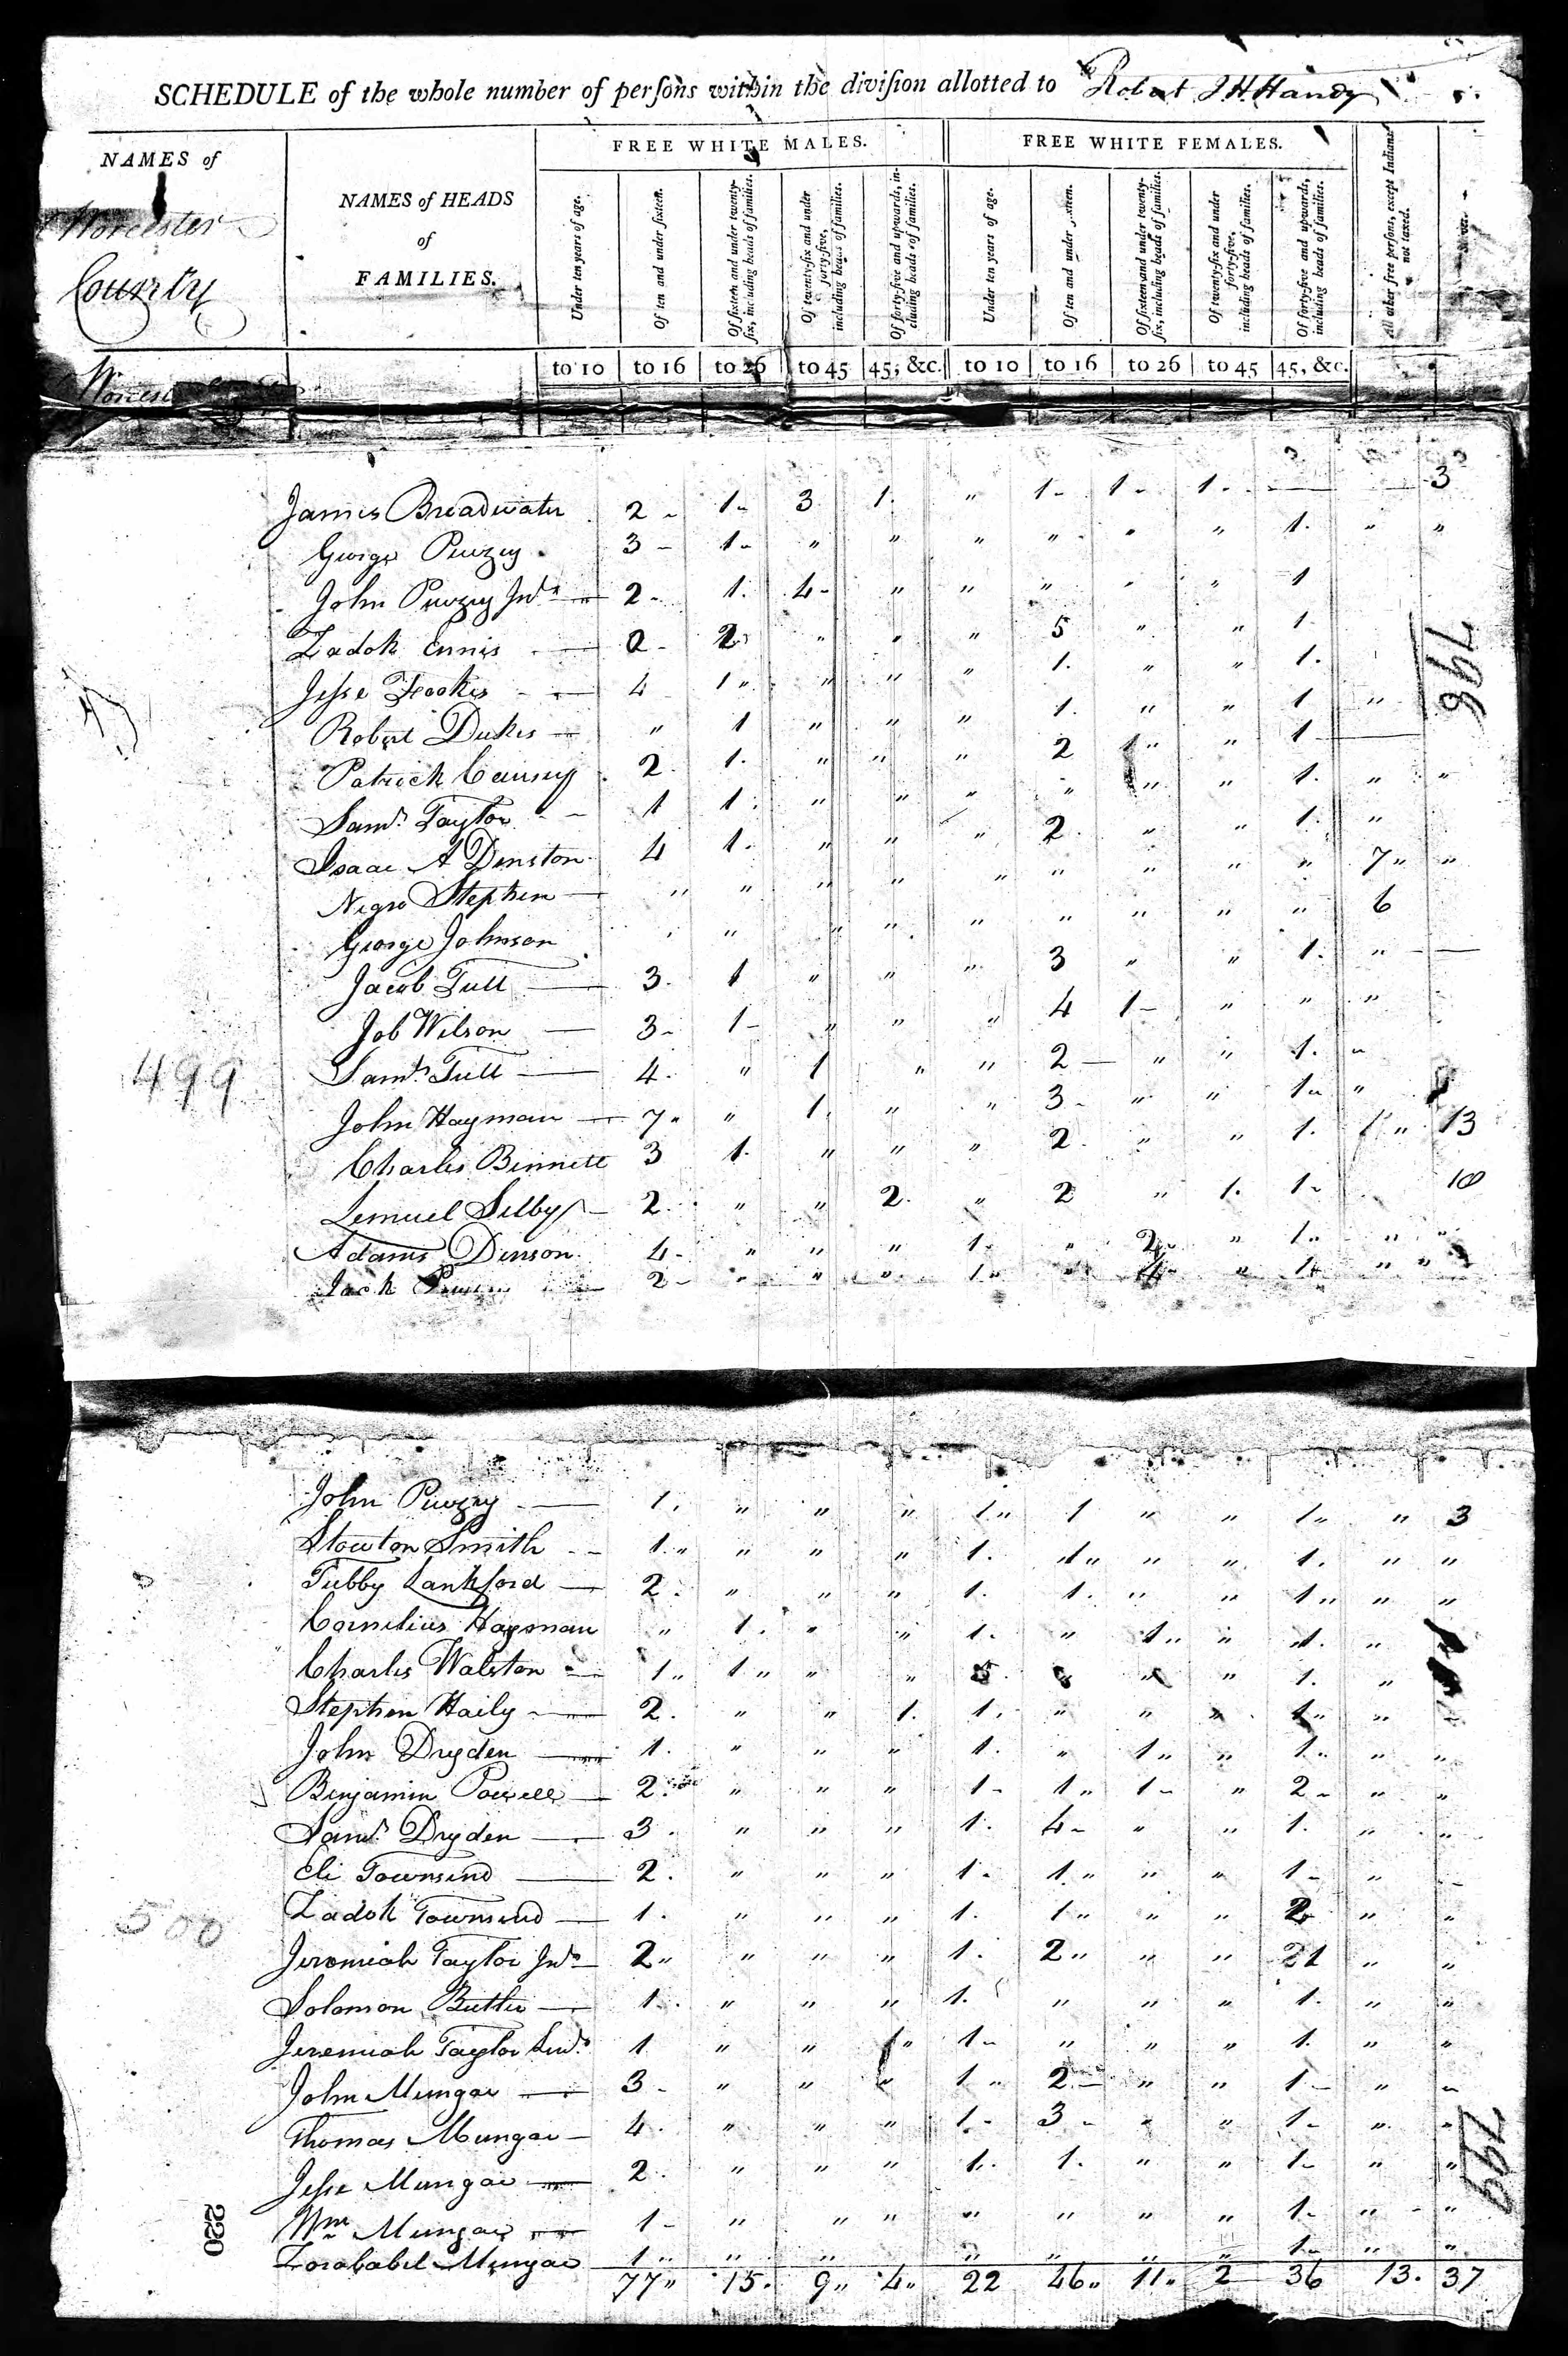 SCHEDULE of the whole number of perſons within the diviſion allotted to Robert J H Handy
NAMES of
Worcester
County
NAMES of HEADS
of
FAMILIES.
FREE WHITE MALES.
FREE WHITE FEMALES.
Under ten years of age.
Of ten and under ſixteen.
Of ſixteen and under twenty-ſix, including heads of families.
Of twenty-ſix and under forty-five, including heads of families.
Of forty-five and upwards, including heads of families.
Under ten years of age.
Of ten and under ſixteen.
Of ſixteen and under twenty-ſix, including heads of families.
Of twenty-ſix and under forty-five, including heads of families.
Of forty-five and upwards, including heads of families.
All other free perſons, except Indians not taxed.
to 10 to 16 to 26 to 45 45, &c. to 10 to 16 to 26 to 45 45, &c.
James Broadwater 2 1 3 1 " 1 1 1 — — 3
George 3 1 " " " " " " 1 " "
John Junr 2 1 4 " " " " " 1
Zadok Ennis 2 " " " 5 " " 1
Jesse 4 1 " " " 1 " " 1
Robert Dukes " 1 " " " 1 " " 1 "
Patrick Causey 2 1 " " " 2 1 " " 1 —
Saml Taylor 1 1 " " " " " " 1 " "
Isaac A Denston 4 1 " " " 2 " " 1 "
Negro Stephen " " " " " " " " " 7 "
George Johnson " " " " " " " " " 6
Jacob Tull 3 1 " " " 3 " " 1 " —
Job Wilson 3 1 " " " 4 1 " " "
Saml Tull 4 " 1 " " 2 " " 1 "
John Hayman 7 " 1 " " 3 " " 1 "
Charles Bennett 3 1 " " " 2 " " 1 1 13
Lemuel Selby 2 " " 2 " 2 " 1 1 10
Adams Denson 4 " " " 1 " 2 " 1 " "
Jack 2 " " " 1 " " 1 " "
798
499
John 1 " " " 1 1 " " 1 " 3
Stowton Smith 1 " " " 1 1 " " 1 " "
Tubby Lankford 2 " " " 1 1 " " 1 " "
Cornelius Hayman " 1 " " 1 " 1 " 1 "
Charles Walston 1 1 " " 5 " " " 1 "
Stephen Haily 2 " " 1 1 " " " 1 "
John Dryden 1 " " " 1 " 1 " 1 " "
Benjamin Powell 2 " " " 1 1 1 " 2 " "
Saml Dryden 3 " " " 1 4 " " 1 " "
Eli Townsend 2 " " " 1 1 " " 1 "
Zadok Townsend 1 " " " 1 1 " " 2 " "
Jeremiah Taylor Junr 2 " " " 1 2 " " 21 " "
Solomon Butler 1 " " " 1 " " " 1 " "
Jeremiah Taylor Senr 1 " " 1 1 " " " 1 " "
John Mungar 3 " " " 1 2 " " 1 " "
Thomas Mungar 4 " " " 1 3 " " 1 " "
Jesse Mungar 2 " " " 1 1 " " 1 " "
Wm Mungar 1 " " " " " " " 1 " "
Zorababel Mungar 1 " " " " " " 1 " "
77 15 9 4 22 46 11 2 36 13 37
500
799
220